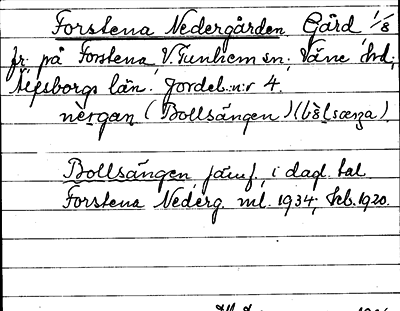 Forstena Nedergården Gård 1/8
fr. på Forstena, V. Tunhem sn; Väne hd;
Älfsborgs län. Jordeb:n:r 4.
nèrgan (Bollsängen) (bòlsæŋa).
Bollsängen, jämf. i dagl. tal
Forstena Nederg. ml. 1934; Skb. 1920.